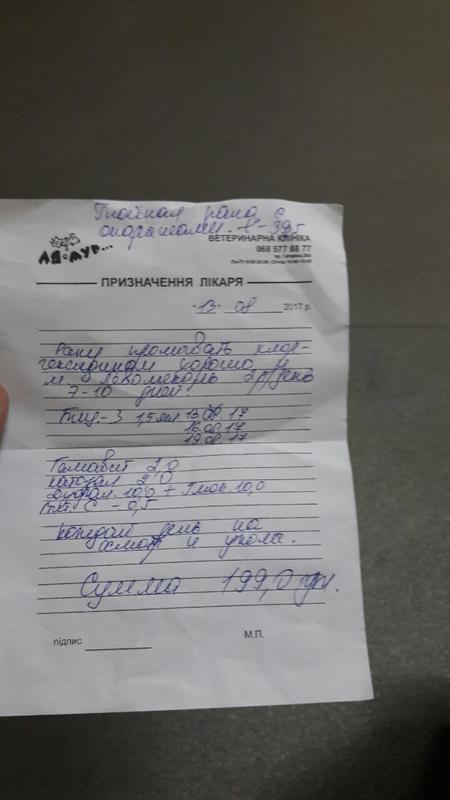 Гнойная рана с
опарышами. t-39,5
Ля-мур...
ВЕТЕРИНАРНА КЛІНІКА
068 577 88 77
ПРИЗНАЧЕННЯ ЛІКАРЯ
13 08 2017 р.
Рану промывать хлор-
гексидином хорошо и
м. Левомеколь 2р/день
7-10 дней
Биц.-3 1,5 мл 13.08.17
16.08.17
19.08.17
Гамавит 2,0
катозал 2,0
Дуфал. 10,0 + Глюк. 10,0
Вит С - 0,5
каждый день на
осмотр и укола.
Сумма 199,0 грн.
підпис
М.П.